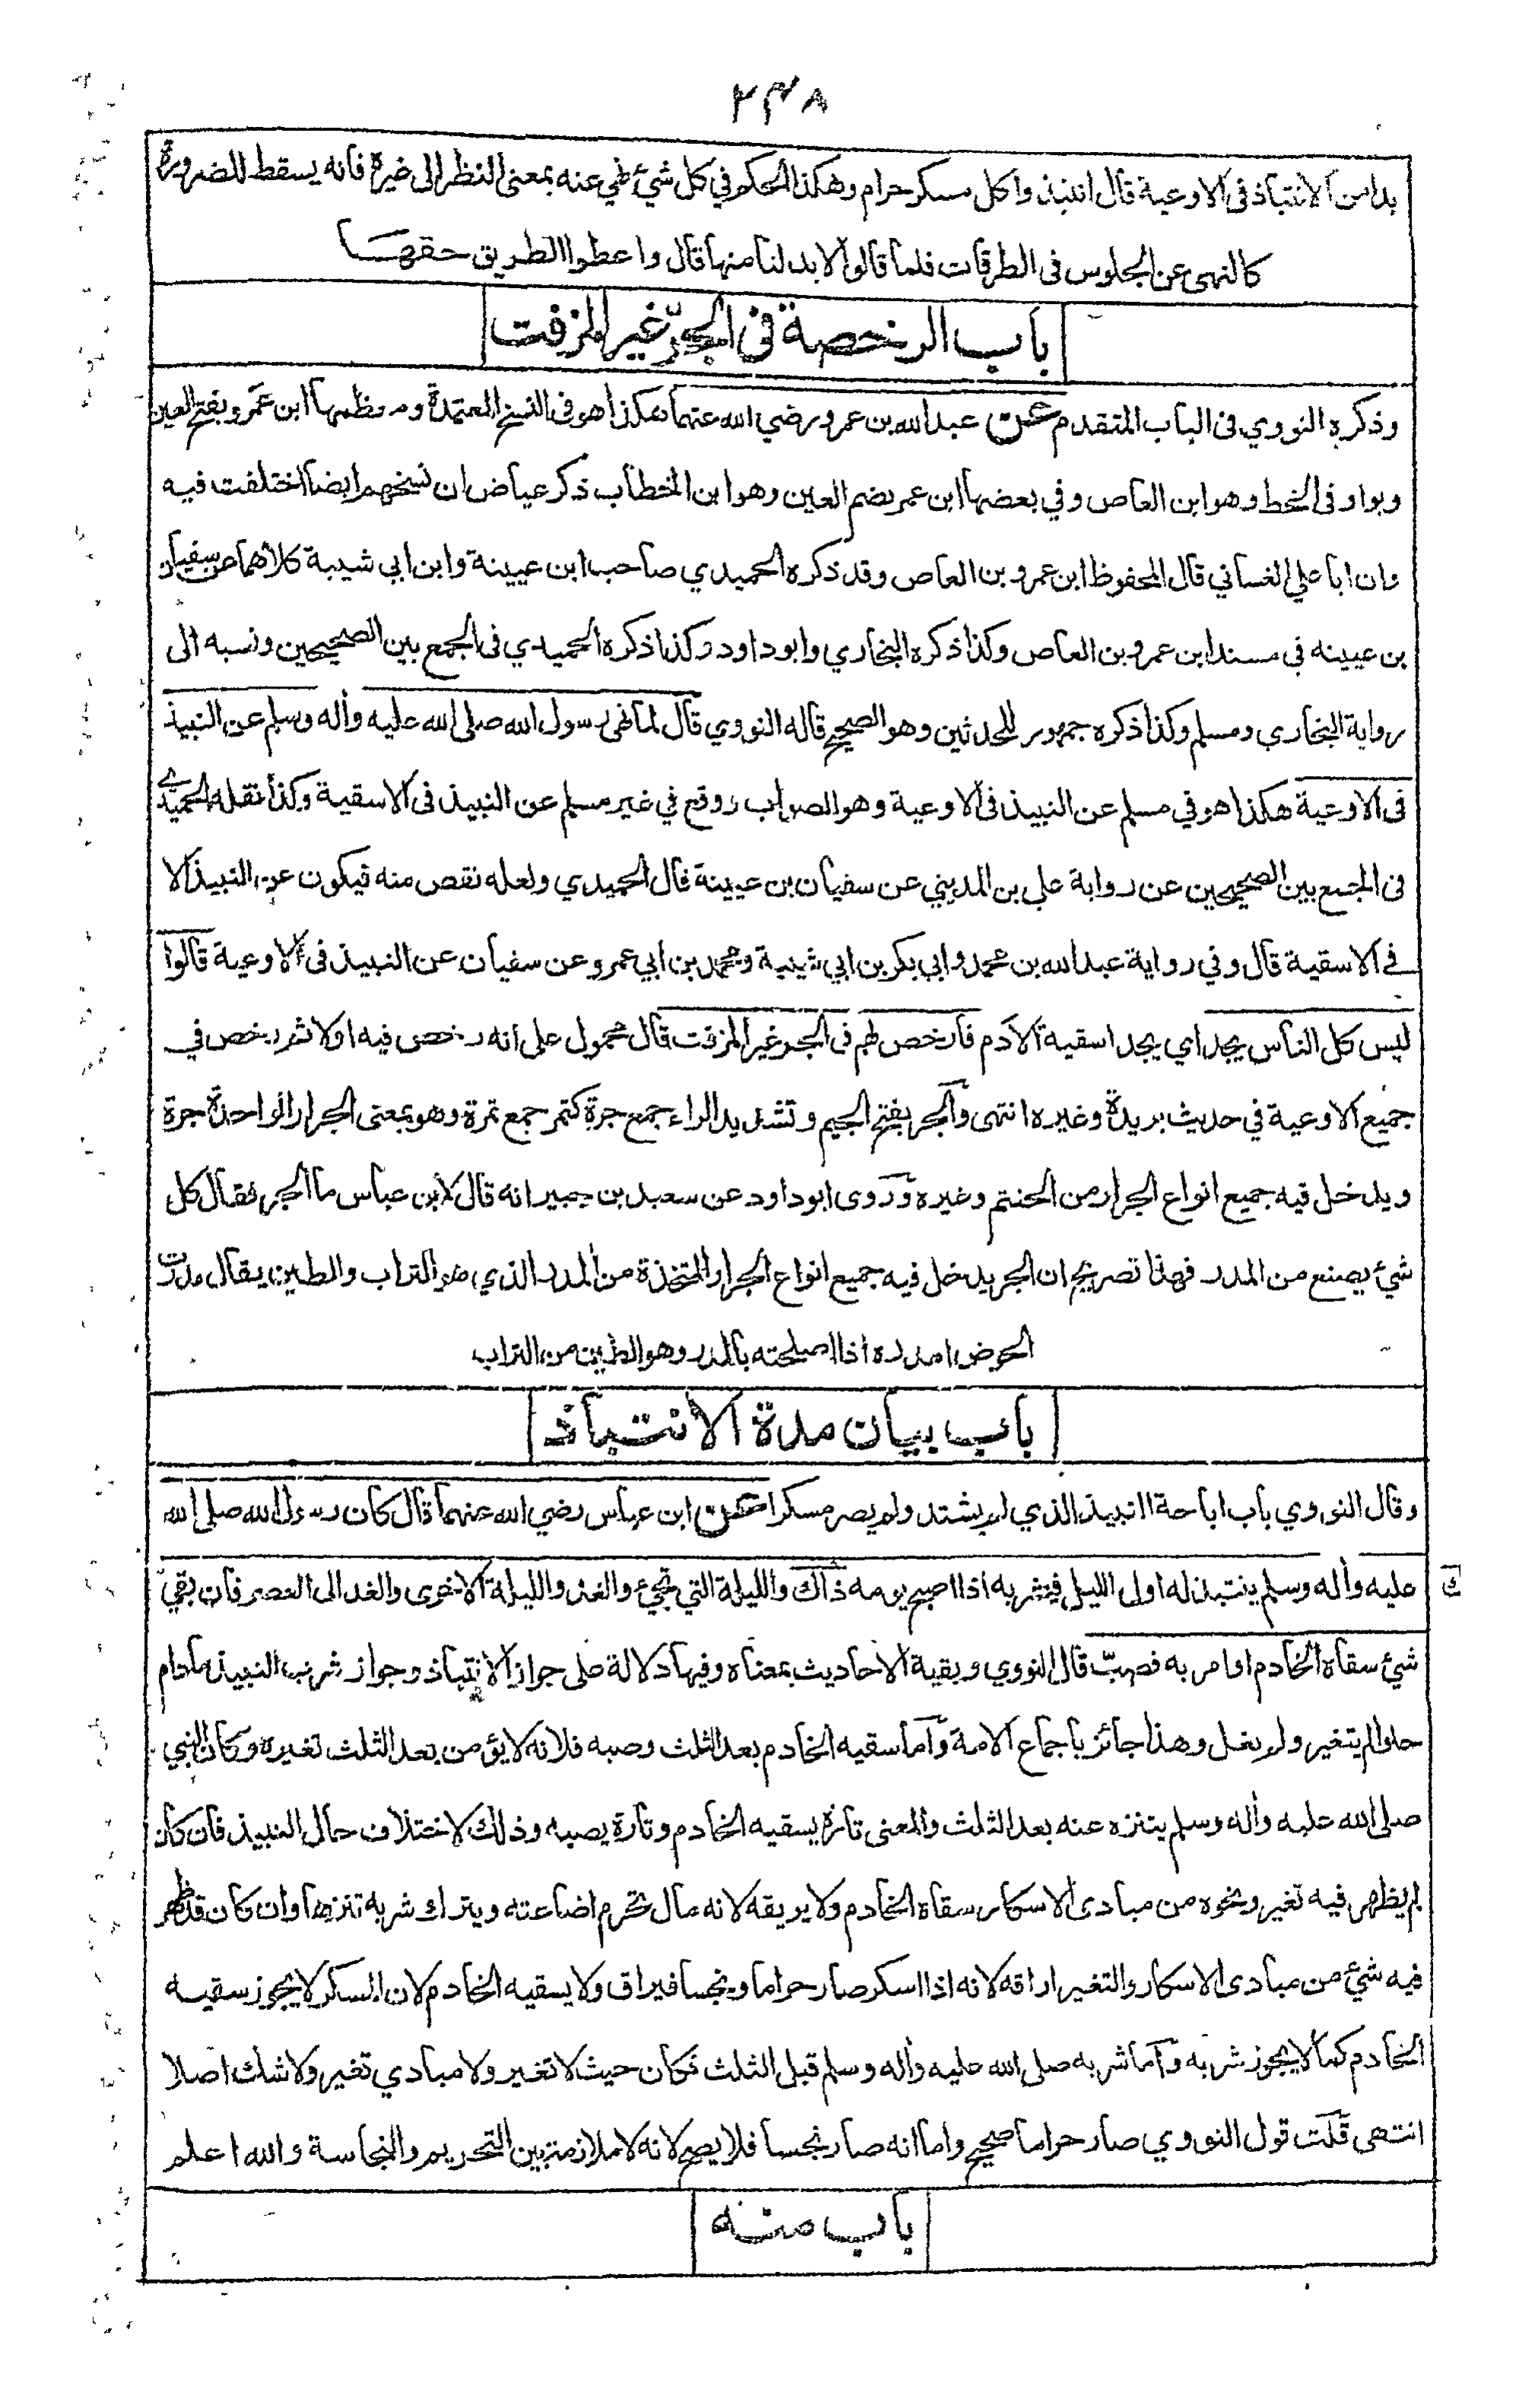 ٢٣٨
بدا من الانتباذ فى الاوعية قال انتبذوا وكل مسكر حرام وهكذا الحكم في كل شئ نهي عنه بمعنى النظر الى غيره فانه يسقط للضرورة
كالنهى عن الجلوس فى الطرقات فلما قالوا لابد لنا منها قال واعطوا الطريق حقها
باب الرخصة فى الجرّ غير المزفت
وذكره النووي فى الباب المتقدم عن عبد الله بن عمرو رضي الله عنهما هكذا هو فى النسخ المعتمدة ومعظمها ابن عمرو بفتح العين
وبواو فى الخط وهو ابن العاص وفي بعضها ابن عمر بضم العين وهو ابن الخطاب ذكر عياض ان نسخهم ايضا اختلفت فيه
وان ابا علي الغساني قال المحفوظ ابن عمرو بن العاص وقد ذكره الحميدي صاحب ابن عيينة وابن ابي شيبة كلاهما عن سفيان
بن عيينه في مسند ابن عمرو بن العاص وكذا ذكره البخاري وابو داود وكذا ذكره الحميدي فى الجمع بين الصحيحين ونسبه الى
رواية البخاري ومسلم وكذا ذكره جمهور المحدثين وهو الصحيح قاله النووي قال لما نهى رسول الله صلى الله عليه وأله وسلم عن النبيذ
فى الاوعية هكذا هو في مسلم عن النبيذ فى الاوعية وهو الصواب ووقع في غير مسلم عن النبيذ فى الاسقية وكذا نقله الحميدي
فى الجمع بين الصحيحين عن رواية علي بن المديني عن سفيان بن عيينة قال الحميدي ولعله نقص منه فيكون عن النبيذ الا
فى الاسقية قال وفي رواية عبد الله بن محمد وابي بكر بن ابي شيبة ومحمد بن ابي عمر وعن سفيان عن النبيذ فى الاوعية قالوا
ليس كل الناس يجد اي يجد اسقية الادم فارخص لهم فى الجر غير المزفت قال محمول على انه رخص فيه اولا ثم رخص في
جميع الاوعية في حديث بريدة وغيره انتهى والجر بفتح الجيم وتشديد الراء جمع جرة كتمر جمع تمرة وهو بمعنى الجرار الواحدة جرة
ويدخل فيه جميع انواع الجرار من الحنتم وغيره وروى ابو داود عن سعيد بن جبير انه قال لابن عباس ما الجر فقال كل
شئ يصنع من المدر فهذا تصريح ان الجر يدخل فيه جميع انواع الجرار المتخذة من المدر الذي هو التراب والطين يقال مدرت
الحوض امدره اذا اصلحته بالمدر وهو الطين من التراب
باب بيان مدة الانتباذ
وقال النووي باب اباحة النبيذ الذي لم يشتد ولم يصر مسكرا عن ابن عباس رضي الله عنهما قال كان رسول الله صلى الله
عليه وأله وسلم ينتبذ له اول الليل فيشربه اذا اصبح يومه ذاك والليلة التي تجئ والغد والليلة الاخرى والغد الى العصر فان بقي
شئ سقاه الخادم او امر به فصبّ قال النووي وبقية الاحاديث بمعناه وفيها دلالة على جواز الانتباذ وجواز شرب النبيذ مادام
حلوا لم يتغير ولم يغل وهذا جائز باجماع الامة وأما سقيه الخادم بعد الثلث وصبه فلانه لا يؤمن بعد الثلث تغيره وكان النبي
صلى الله عليه وأله وسلم يتنزه عنه بعد الثلث والمعنى تارة يسقيه الخادم وتارة يصبه وذلك لاختلاف حال النبيذ فان كان
لم يظهر فيه تغير ونحوه من مبادى الاسكار سقاه الخادم ولا يريقه لانه مال تحرم اضاعته ويترك شربه تنزها وان كان قد ظهر
فيه شئ من مبادى الاسكار والتغير اراقه لانه اذا اسكر صار حراما ونجسا فيراق ولا يسقيه الخادم لان المسكر لا يجوز سقيه
الخادم كما لا يجوز شربه وأما شربه صلى الله عليه وأله وسلم قبل الثلث فكان حيث لا تغير ولا مبادي تغير ولا شك اصلا
انتهى قلت قول النووي صار حراما صحيح واما انه صار نجسا فلا يصح لانه لا ملازمة بين التحريم والنجاسة والله اعلم
باب منه